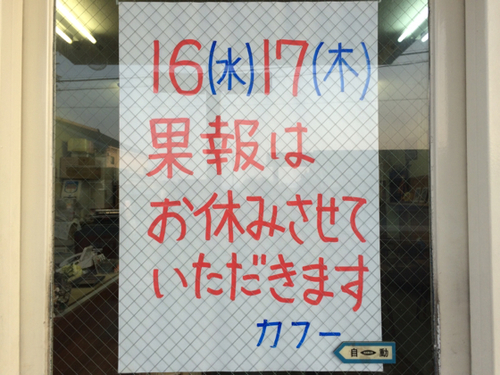 16(水)17(木)
果報は
お休みさせて
いただきます
カフー
自動